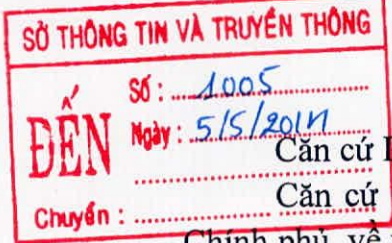 SỞ THÔNG TIN VÀ TRUYỀN THÔNG
ĐẾN
Số : 1005
Ngày : 5/5/201
Căn cứ
Căn cứ
Chuyển :
Chính phủ về